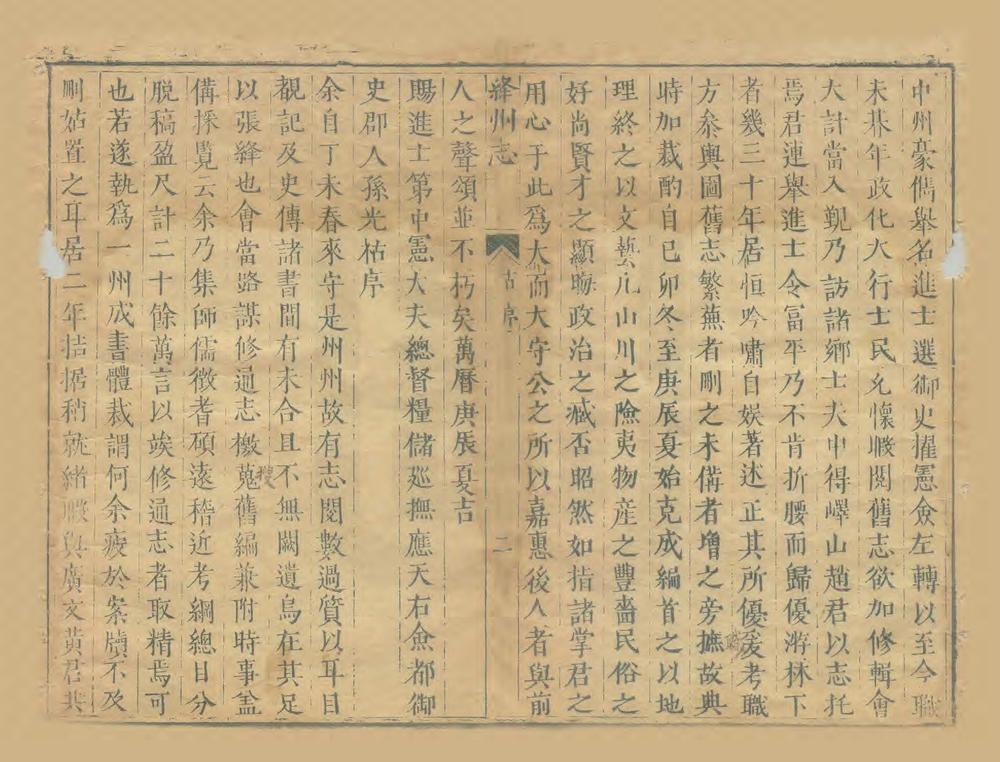 中州豪儁舉名進士選御史擢憲僉左轉以至今職
未朞年政化大行士民允懷暇閱舊志欲加修輯會
大計當入覲乃訪諸鄉士夫中得嶧山趙君以志托
焉君連舉進士令富平乃不肯折腰而歸優游林下
者幾三十年居恒吟嘯自娛著述正其所優爰考職
方叅輿圖舊志繁蕪者刪之未備者增之旁摭故典
時加裁酌自己卯冬至庚辰夏始克成編首之以地
理終之以文藝凡山川之險夷物産之豐嗇民俗之
好尚賢才之顯晦政治之臧否昭然如指諸掌君之
用心于此爲大而大守公之所以嘉惠後人者與前
絳州志
古序
二
人之聲頌並不朽矣萬曆庚辰夏吉
賜進士第中憲大夫總督糧儲廵撫應天右僉都御
史郡人孫光祜序
余自丁未春來守是州州故有志閱數過質以耳目
覩記及史傳諸書間有未合且不無闕遺烏在其足
以張絳也會當路謀修通志檄蒐舊編兼附時事盖
搜
備採覽云余乃集師儒徵耆碩遠稽近考綱總目分
脱稿盈尺計二十餘萬言以竢修通志者取精焉可
也若遂執爲一州成書體裁謂何余疲於案牘不及
刪姑置之耳居二年拮据稍就緒暇與廣文黄君共